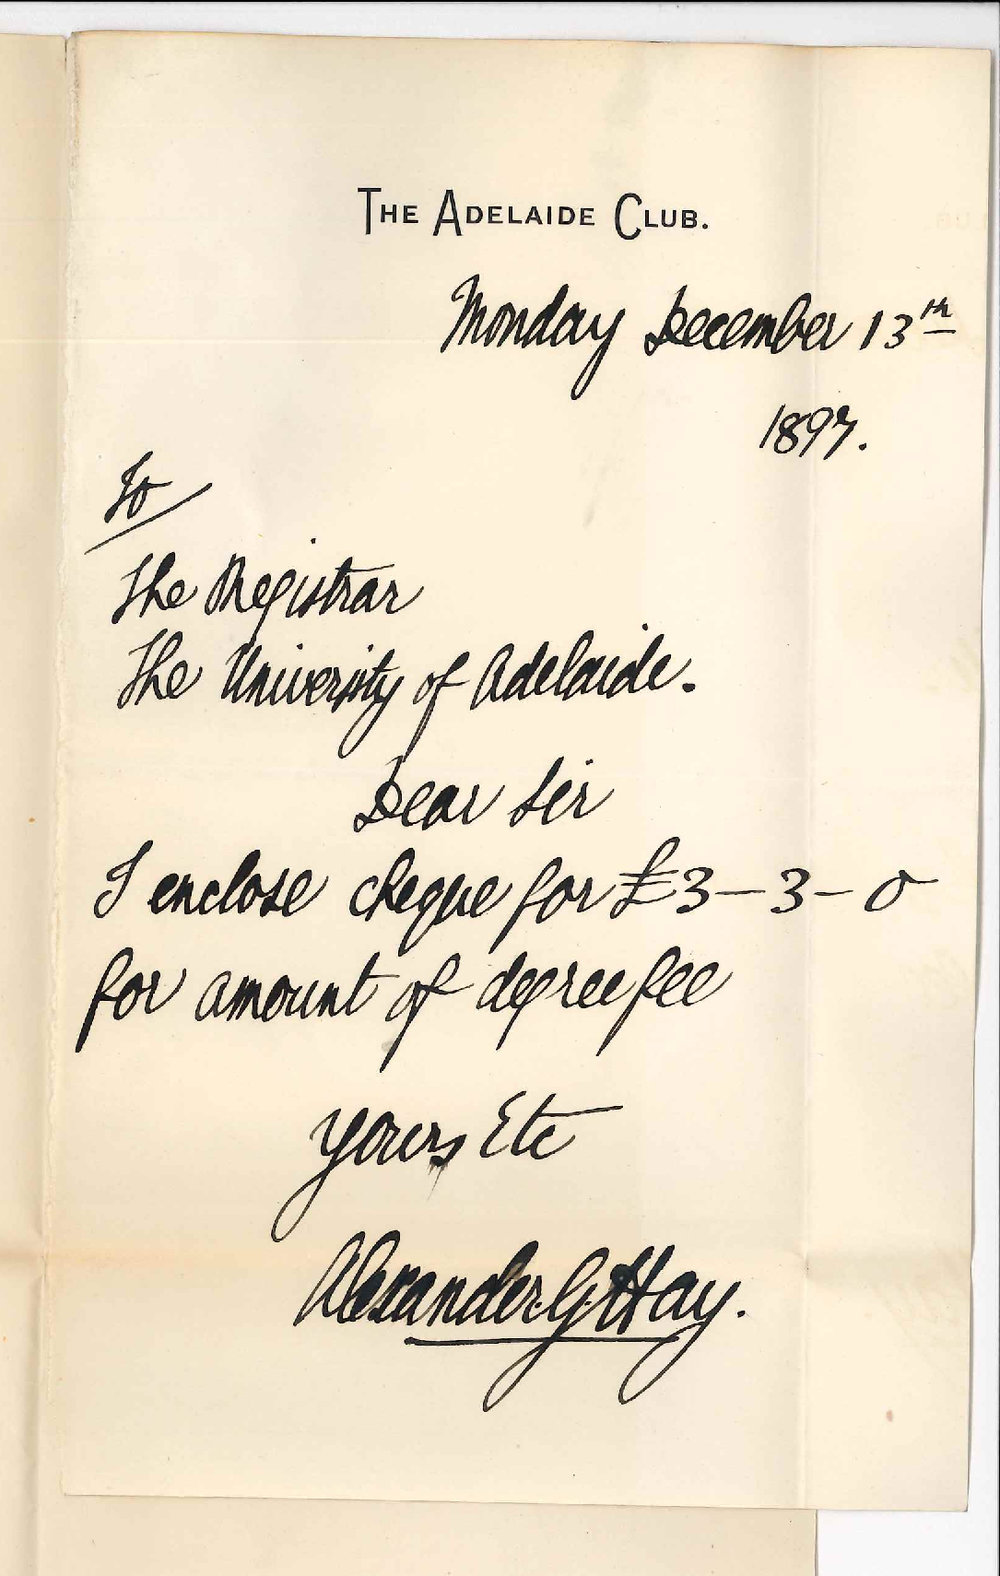 THE ADELAIDE CLUB.
Monday December 13th
1897.
To
The Registrar
The University of Adelaide.
Dear Sir
I enclose cheque for £3-3-0
for amount of degree fee
Yours Etc
Alexander G. Hay.